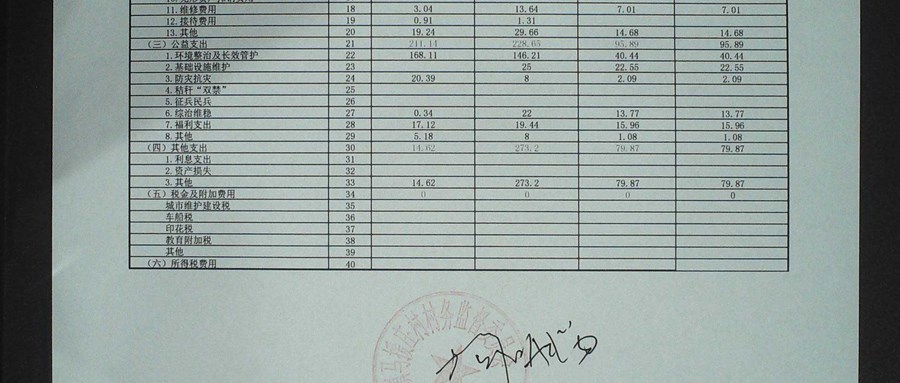 11. 维修费用 18 3.04 13.64 7.01 7.01
12. 接待费用 19 0.91 1.31
13. 其他 20 19.24 29.66 14.68 14.68
(三) 公益支出 21 211.14 228.65 95.89 95.89
1. 环境整治及长效管护 22 168.11 146.21 40.44 40.44
2. 基础设施维护 23 25 22.55 22.55
3. 防灾抗灾 24 20.39 8 2.09 2.09
4. 秸秆“双禁” 25
5. 征兵民兵 26
6. 综治维稳 27 0.34 22 13.77 13.77
7. 福利支出 28 17.12 19.44 15.96 15.96
8. 其他 29 5.18 8 1.08 1.08
(四) 其他支出 30 14.62 273.2 79.87 79.87
1. 利息支出 31
2. 资产损失 32
3. 其他 33 14.62 273.2 79.87 79.87
(五) 税金及附加费用 34 0 0 0 0
城市维护建设税 35
车船税 36
印花税 37
教育附加税 38
其他 39
(六) 所得税费用 40
村村务监